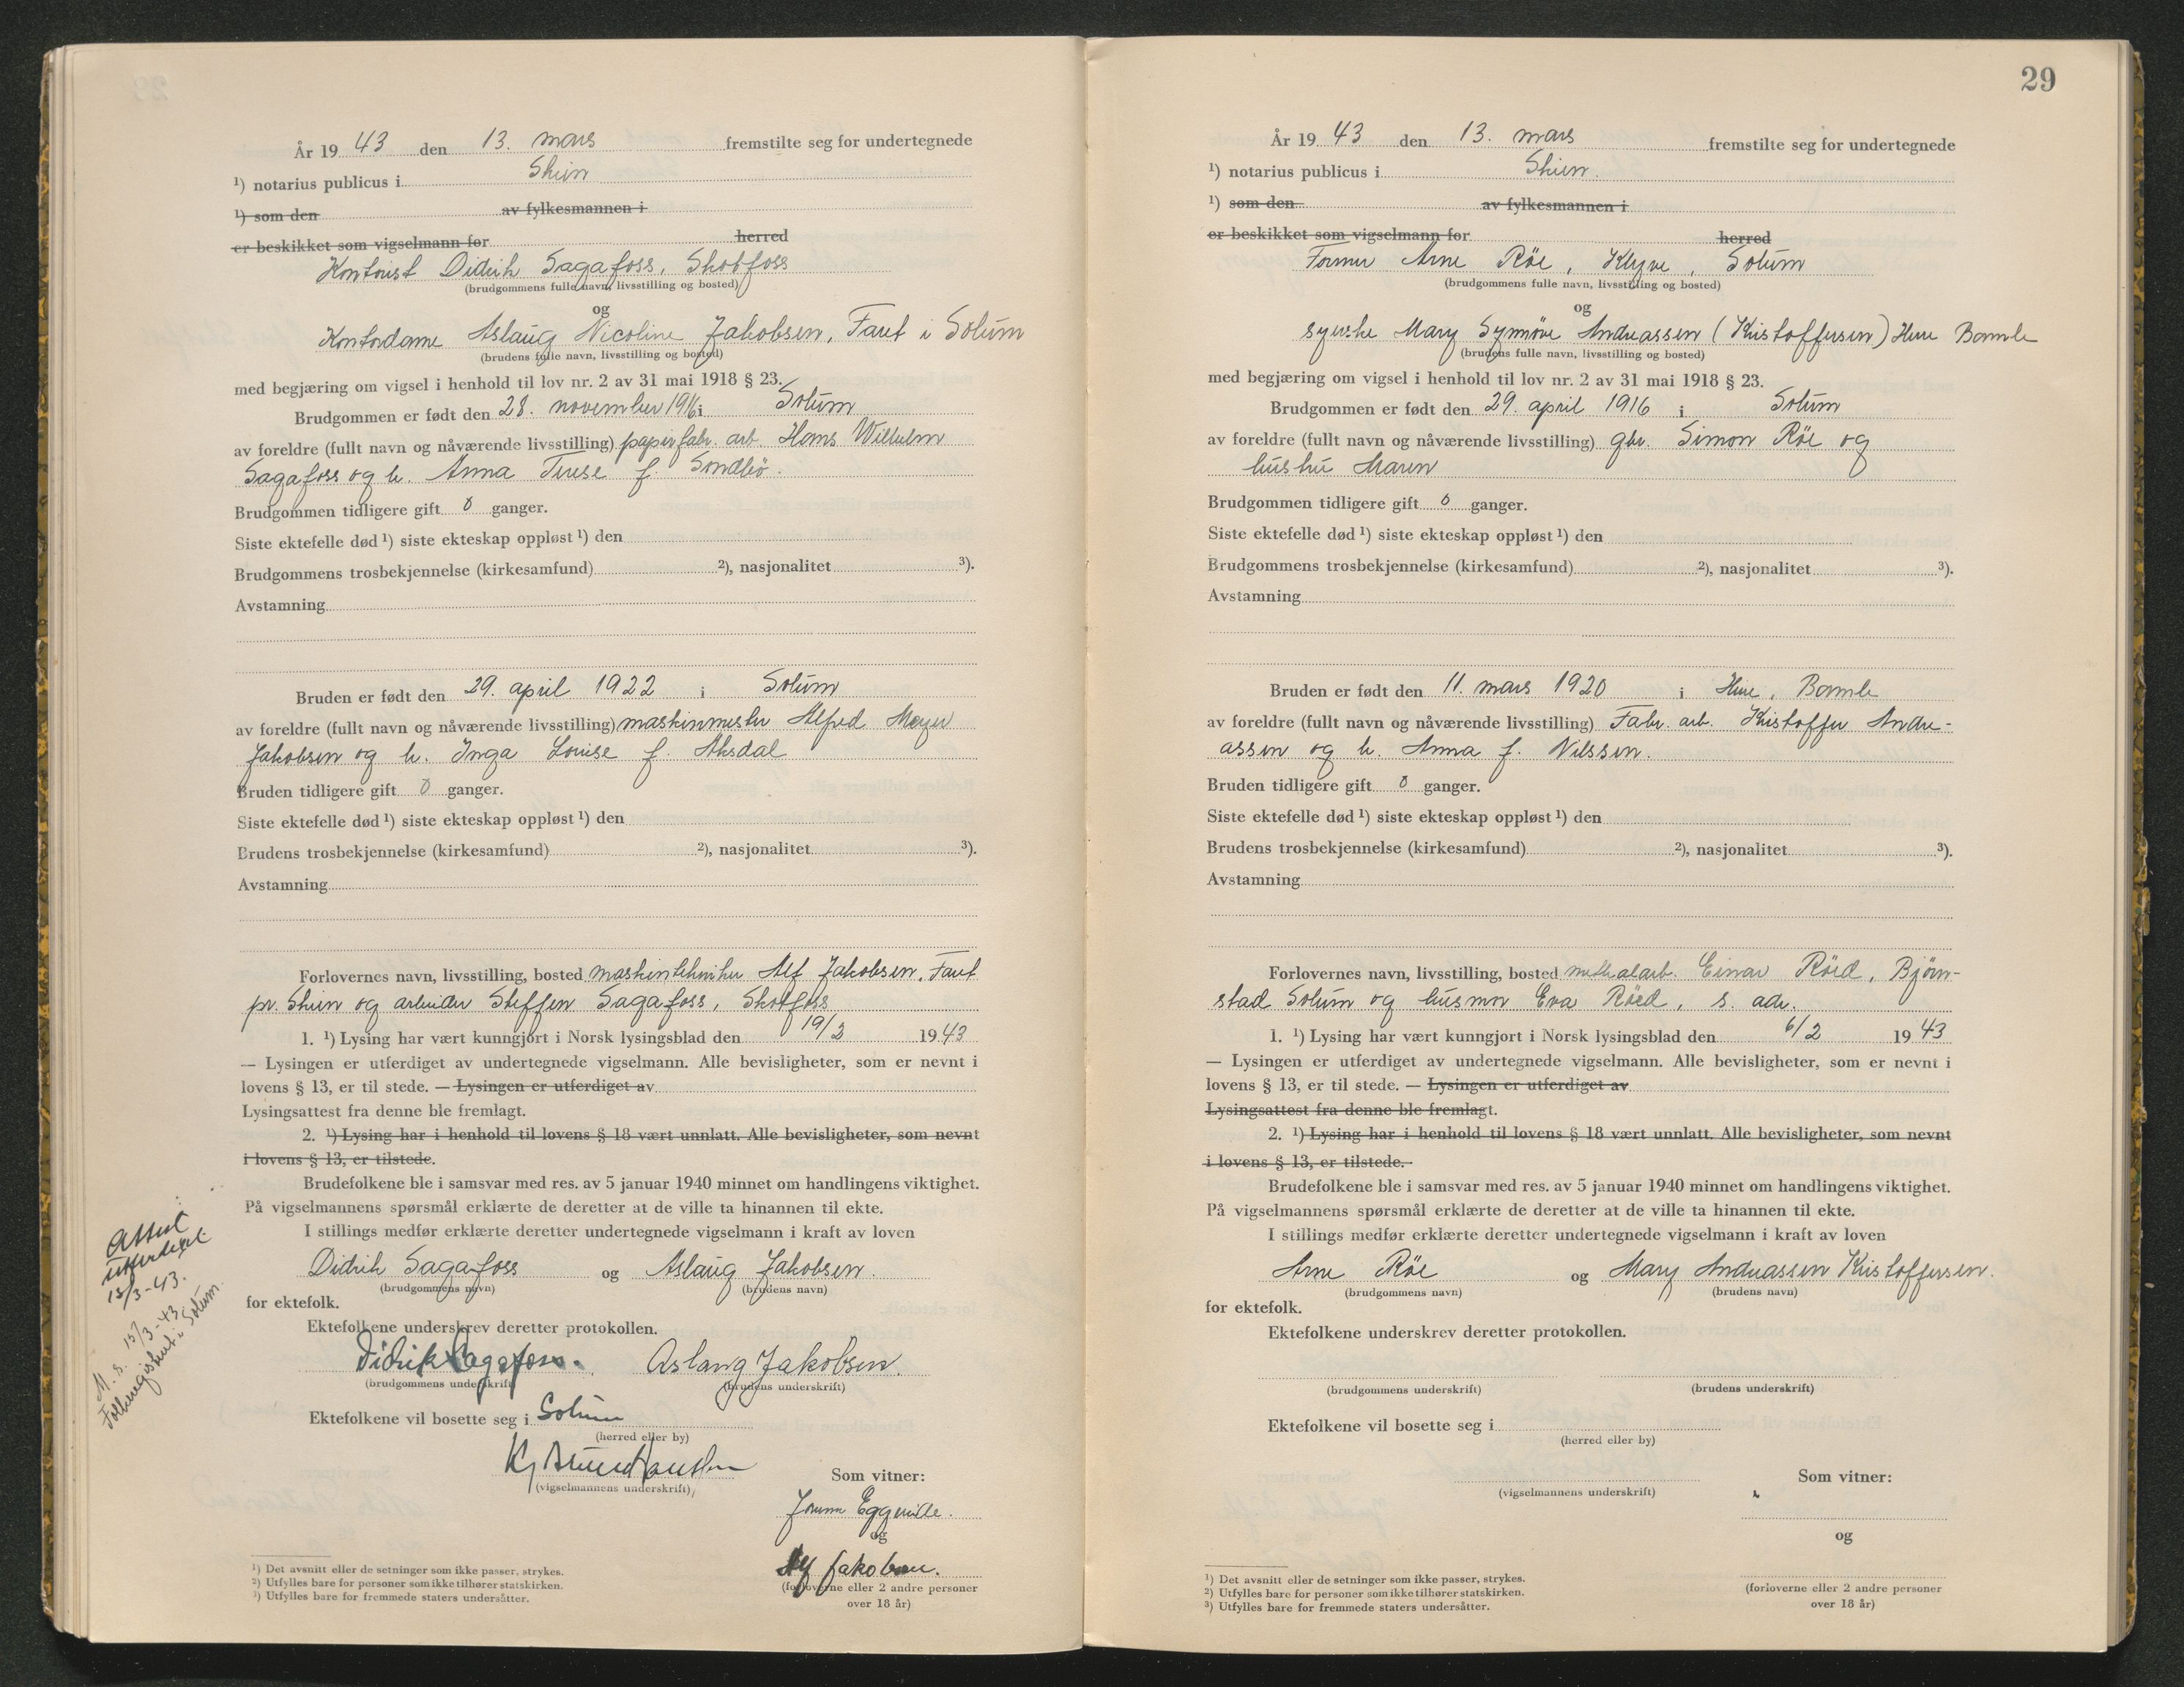 År 19 43 den 13. mars fremstilte seg for undertegnede
¹) notarius publicus i Skien
¹) som den av fylkesmannen i
er beskikket som vigselmann for herred
Kontorist Didrik Sagafoss, Skotfoss
(brudgommens fulle navn, livsstilling og bosted)
og
Kontordame Aslaug Nicoline Jakobsen, Faret i Solum
(brudens fulle navn, livsstilling og bosted)
med begjæring om vigsel i henhold til lov nr. 2 av 31 mai 1918 § 23.
Brudgommen er født den 28. november 1916 i Solum
av foreldre (fullt navn og nåværende livsstilling) papirfabr. arb. Hans Wilhelm
Sagafoss og h. Anna Terese f. Sondbö.
Brudgommen tidligere gift 0 ganger.
Siste ektefelle død ¹) siste ekteskap oppløst ¹) den
Brudgommens trosbekjennelse (kirkesamfund) ²), nasjonalitet ³).
Avstamning
Bruden er født den 29. april 1922 i Solum
av foreldre (fullt navn og nåværende livsstilling) maskinmester Alfred Meyer
Jakobsen og h. Inga Louise f. Aksdal
Bruden tidligere gift 0 ganger.
Siste ektefelle død ¹) siste ekteskap oppløst ¹) den
Brudens trosbekjennelse (kirkesamfund) ²), nasjonalitet ³).
Avstamning
Forlovernes navn, livsstilling, bosted maskintekniker Alf Jakobsen, Faret
pr. Skien og arbeider Steffen Sagafoss, Skotfoss
1. ¹) Lysing har vært kunngjort i Norsk lysingsblad den 19/2 19 43
— Lysingen er utferdiget av undertegnede vigselmann. Alle bevisligheter, som er nevnt i
lovens § 13, er til stede. — Lysingen er utferdiget av
Lysingsattest fra denne ble fremlagt.
2. ¹) Lysing har i henhold til lovens § 18 vært unnlatt. Alle bevisligheter, som nevnt
i lovens § 13, er tilstede.
Brudefolkene ble i samsvar med res. av 5 januar 1940 minnet om handlingens viktighet.
På vigselmannens spørsmål erklærte de deretter at de ville ta hinannen til ekte.
I stillings medfør erklærte deretter undertegnede vigselmann i kraft av loven
Didrik Sagafoss og Aslaug Jakobsen.
(brudgommens navn) (brudens navn)
for ektefolk.
Ektefolkene underskrev deretter protokollen.
Didrik Sagafoss. Aslaug Jakobsen.
(brudgommens underskrift) (brudens underskrift)
Ektefolkene vil bosette seg i Solum
(herred eller by)
(vigselmannens underskrift)
Som vitner:
Eggerud
og
Alf Jakobsen.
(forloverne eller 2 andre personer
over 18 år)
Attest
utferdiget
13/3-43.
M. s. 13/3-43
Folkeregisteret i Solum
¹) Det avsnitt eller de setninger som ikke passer, strykes.
²) Utfylles bare for personer som ikke tilhører statskirken.
³) Utfylles bare for fremmede staters undersåtter.
29
År 19 43 den 13. mars fremstilte seg for undertegnede
¹) notarius publicus i Skien.
¹) som den av fylkesmannen i
er beskikket som vigselmann for herred
Former Arne Röe, Klyve, Solum
(brudgommens fulle navn, livsstilling og bosted)
og
syerske Mary Synnöve Andreassen (Kristoffersen) Herre Bamle
(brudens fulle navn, livsstilling og bosted)
med begjæring om vigsel i henhold til lov nr. 2 av 31 mai 1918 § 23.
Brudgommen er født den 29. april 1916 i Solum
av foreldre (fullt navn og nåværende livsstilling) gbr. Simon Röe og
hustru Maren
Brudgommen tidligere gift 0 ganger.
Siste ektefelle død ¹) siste ekteskap oppløst ¹) den
Brudgommens trosbekjennelse (kirkesamfund) ²), nasjonalitet ³).
Avstamning
Bruden er født den 11. mars 1920 i Herre, Bamle
av foreldre (fullt navn og nåværende livsstilling) Fabr. arb. Kristoffer Andre-
assen og h. Anna f. Nilssen.
Bruden tidligere gift 0 ganger.
Siste ektefelle død ¹) siste ekteskap oppløst ¹) den
Brudens trosbekjennelse (kirkesamfund) ²), nasjonalitet ³).
Avstamning
Forlovernes navn, livsstilling, bosted methalarb. Einar Röed, Bjørn-
stad Solum og husmor Eva Röed, s. adr.
1. ¹) Lysing har vært kunngjort i Norsk lysingsblad den 6/2 19 43
— Lysingen er utferdiget av undertegnede vigselmann. Alle bevisligheter, som er nevnt i
lovens § 13, er til stede. — Lysingen er utferdiget av
Lysingsattest fra denne ble fremlagt.
2. ¹) Lysing har i henhold til lovens § 18 vært unnlatt. Alle bevisligheter, som nevnt
i lovens § 13, er tilstede.
Brudefolkene ble i samsvar med res. av 5 januar 1940 minnet om handlingens viktighet.
På vigselmannens spørsmål erklærte de deretter at de ville ta hinannen til ekte.
I stillings medfør erklærte deretter undertegnede vigselmann i kraft av loven
Arne Röe og Mary Andreassen Kristoffersen.
(brudgommens navn) (brudens navn)
for ektefolk.
Ektefolkene underskrev deretter protokollen.
(brudgommens underskrift) (brudens underskrift)
Ektefolkene vil bosette seg i
(herred eller by)
(vigselmannens underskrift)
Som vitner:
og
(forloverne eller 2 andre personer
over 18 år)
¹) Det avsnitt eller de setninger som ikke passer, strykes.
²) Utfylles bare for personer som ikke tilhører statskirken.
³) Utfylles bare for fremmede staters undersåtter.